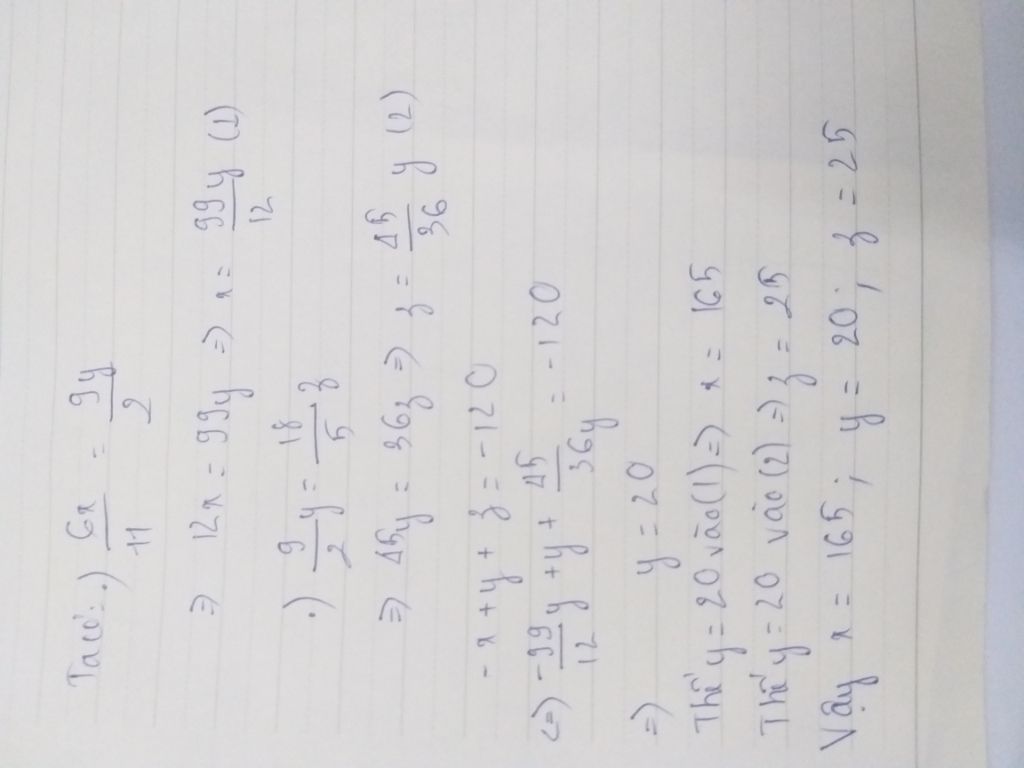 Ta có: •) 6x/11 = 9y/2
=> 12x = 99y => x = 99y/12 (1)
•) 9/2 y = 18/5 z
=> 45y = 36z => z = 45/36 y (2)
-x + y + z = -120
<=> -99/12 y + y + 45/36y = -120
=> y = 20
Thế y = 20 vào (1) => x = 165
Thế y = 20 vào (2) => z = 25
Vậy x = 165; y = 20; z = 25